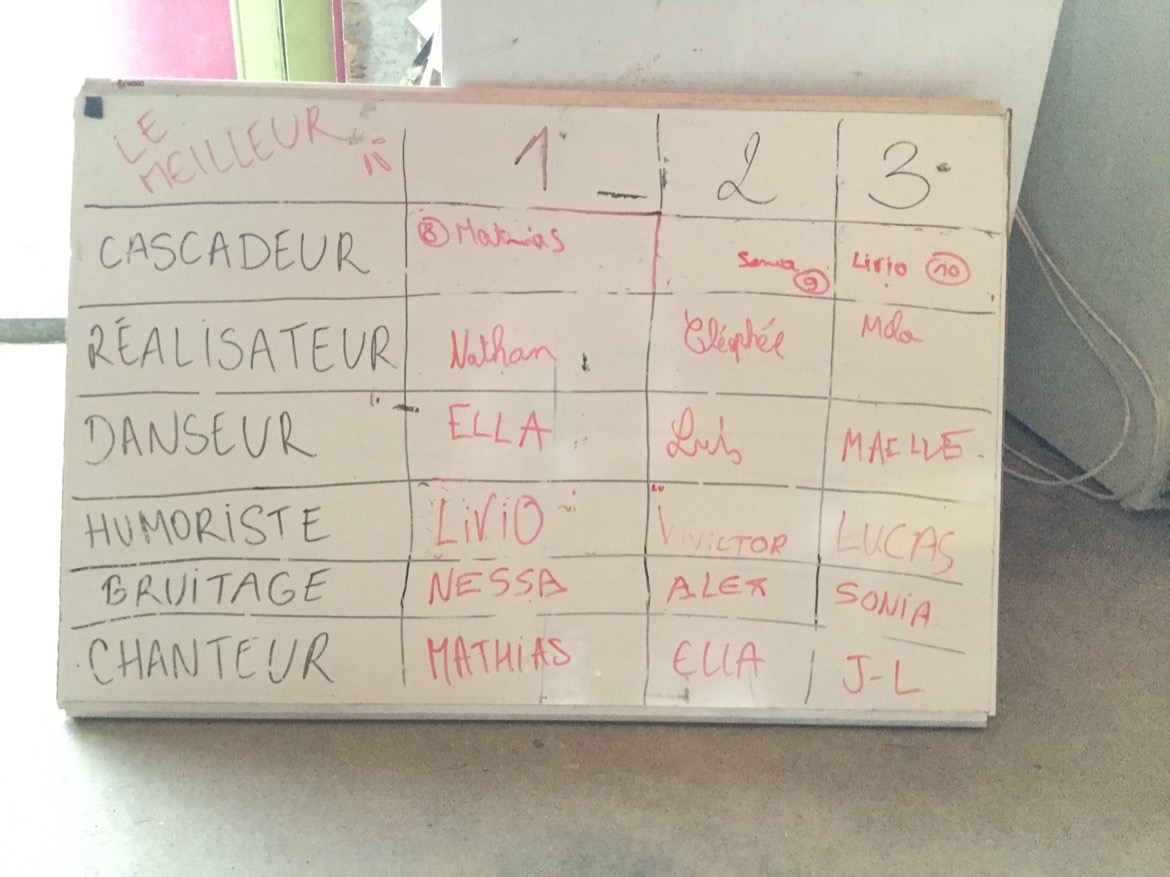 LE MEILLEUR 1 2 3
CASCADEUR 8 Mathias Sonia 9 Livio 10
RÉALISATEUR Nathan Cléophée
DANSEUR ELLA Luis MAELLE
HUMORISTE LIVIO VICTOR LUCAS
BRUITAGE NESSA ALEX SONIA
CHANTEUR MATHIAS ELLA J-L